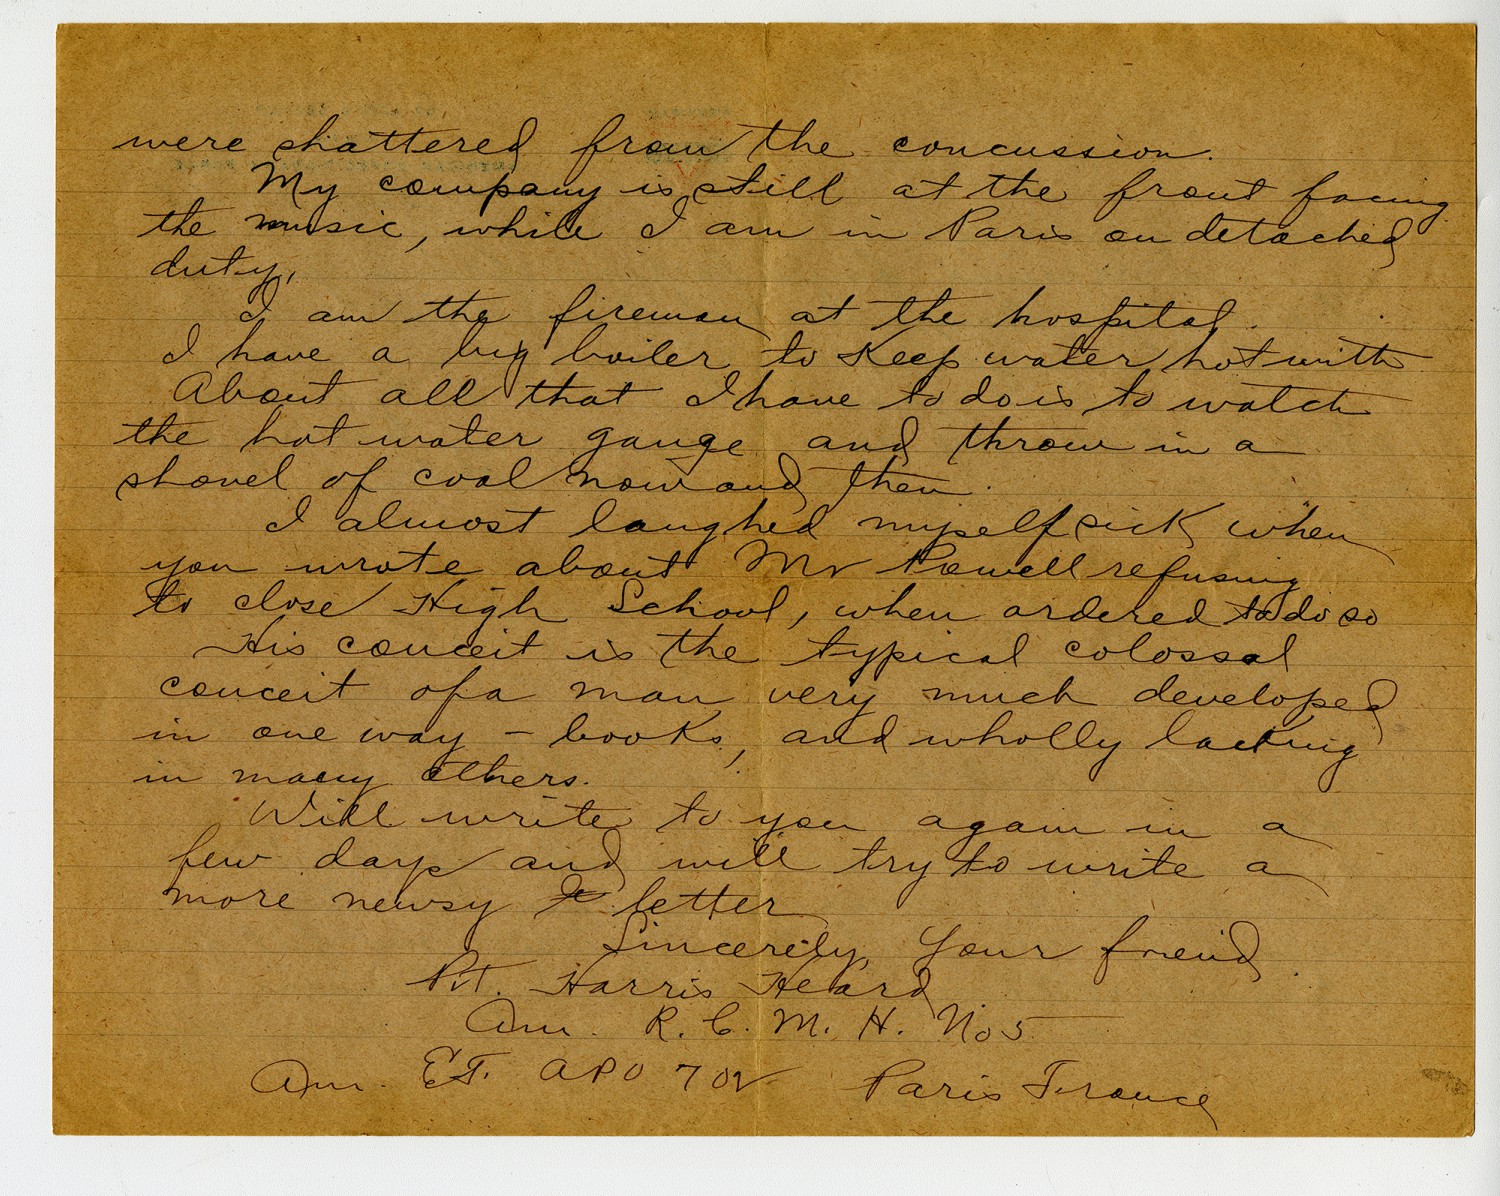 were shattered from the concussion.
My company is still at the front facing
the music, while I am in Paris on detached
duty,
I am the fireman at the hospital.
I have a big boiler to keep water hot with
About all that I have to do is to watch
the hot water gauge and throw in a
shovel of coal now and then.
I almost laughed myself sick when
you wrote about Mr Powell refusing
to close High School, when ordered to do so
His conceit is the typical colossal
conceit of a man very much developed
in one way – books, and wholly lacking
in many others.
Will write to you again in a
few days and will try to write a
more newsy letter
Sincerely, Your friend.
Pvt. Harris Heard
Am. R. C. M. H. No 5
Am. E.F. APO 702 Paris France